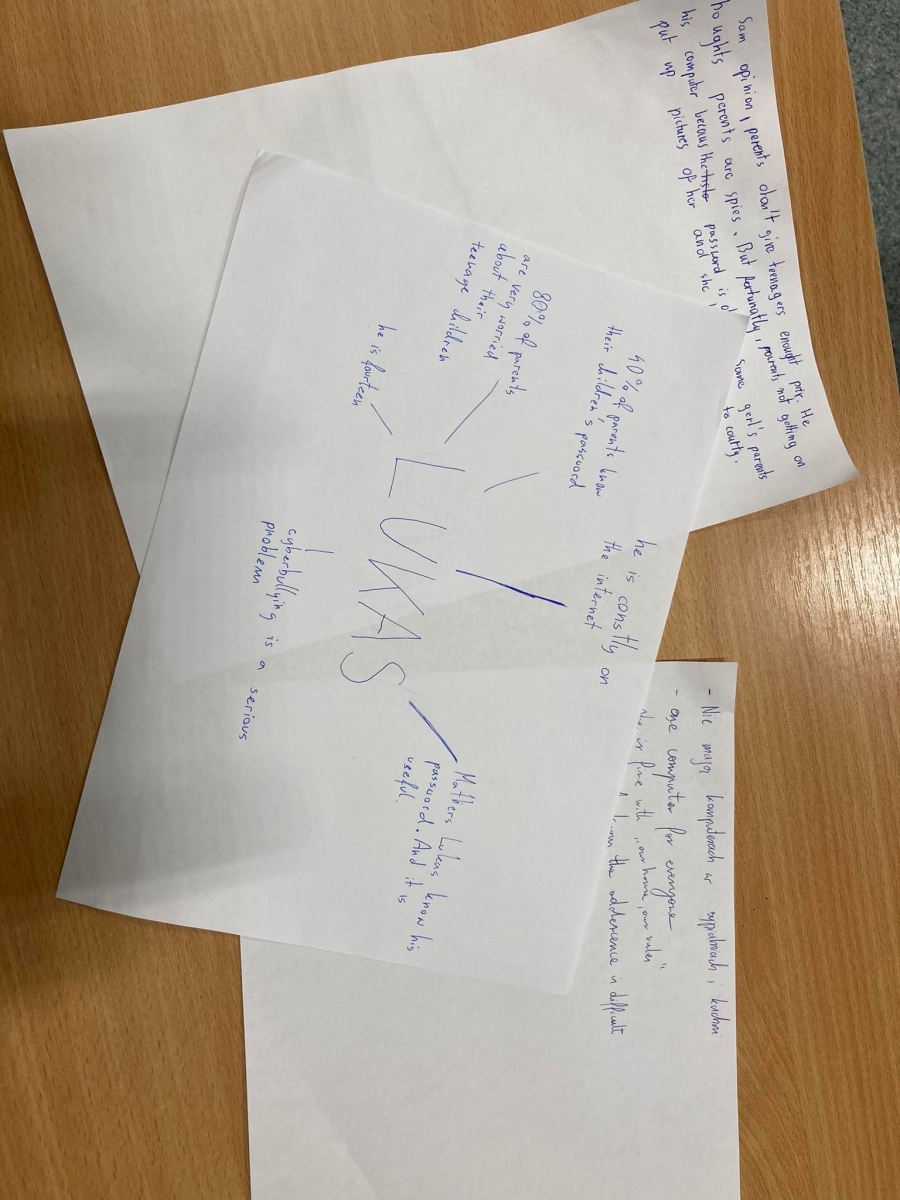 Sam opinion, perents don't give teenagers enought priv. He
houghts perents are spies. But fortunatly, parents not getting on
his computer becaus password is d
some gerl's parents
put up pictures of her and she
to courty.
40% of parents know
their children's password
80% of parents
are very worried
about their
teenage children
he is fourteen
he is constly on
the internet
LUKAS
cyberbullying is a serious
problem
Mathers Lukas know his
password. And it is
useful.
- Nie mają komputerach w sypialniach, kuchni
- one computer for evenyone
is fine with "our home, our rules"
the adolescence is difficult